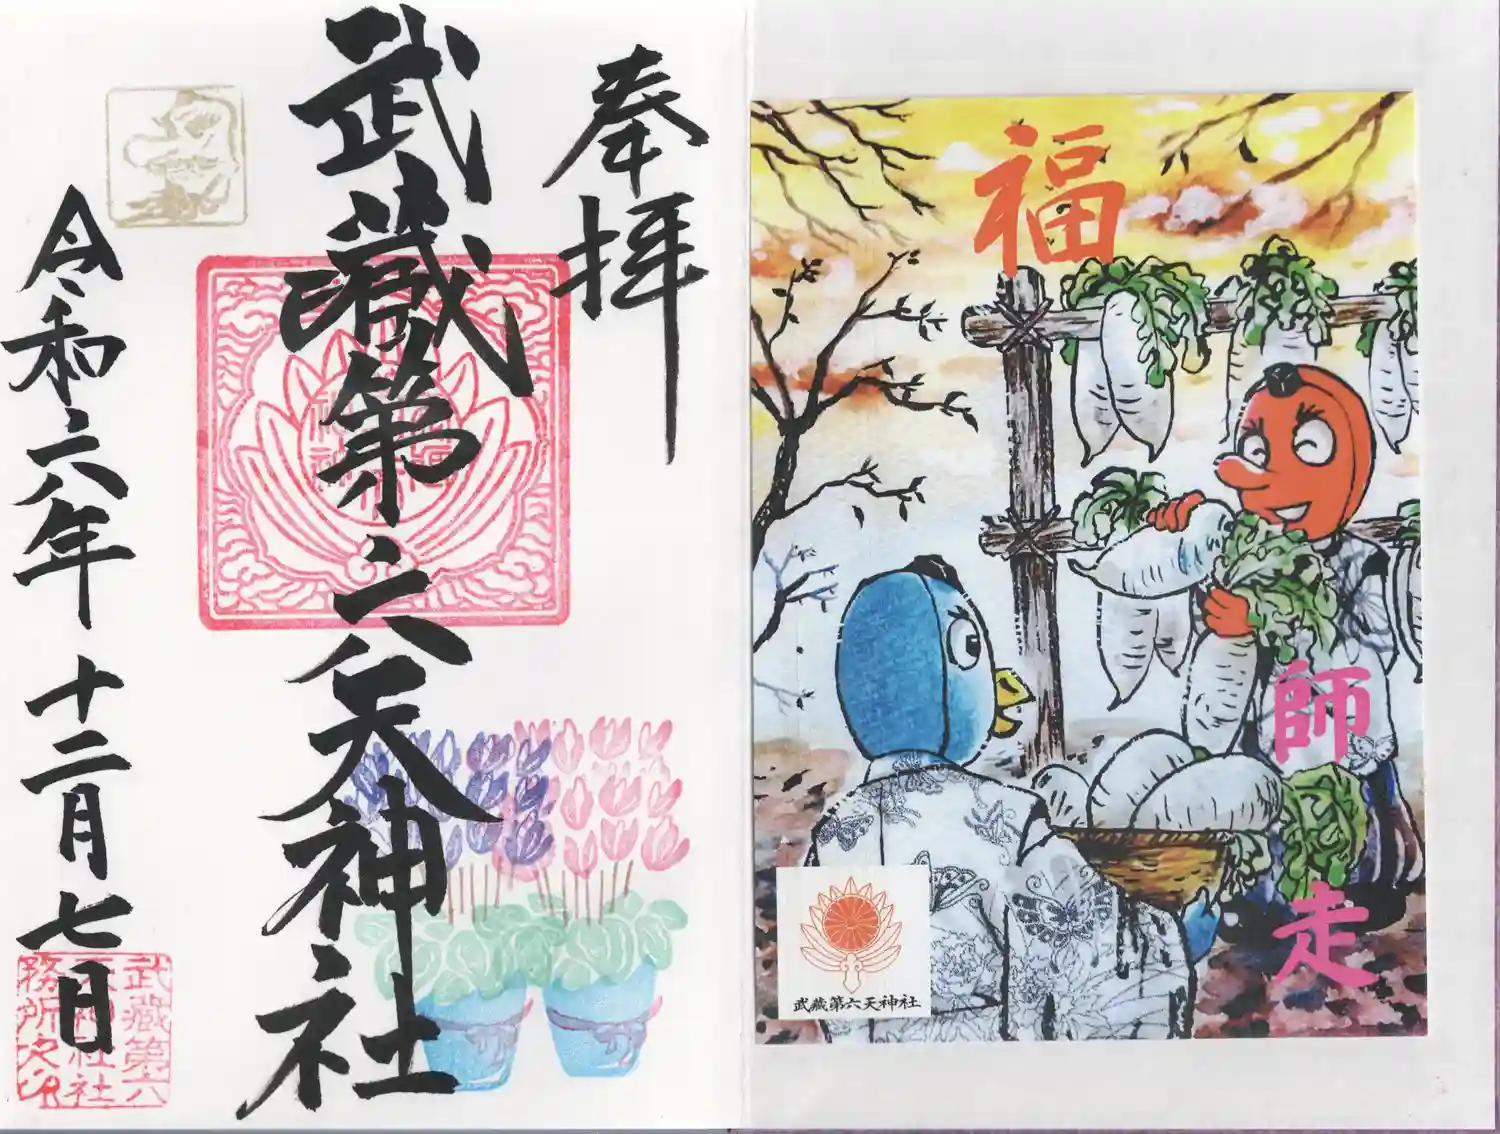 奉拝
武蔵第六天神社
令和六年十二月七日
武蔵第六
天神社社
務所之印
福
師走
武蔵第六天神社